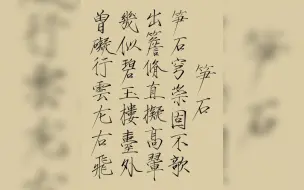 筍石
筍石穹崇固不欹
出簷脩直擬高翬
幾似碧玉樓臺外
曾礙行雲左右飛